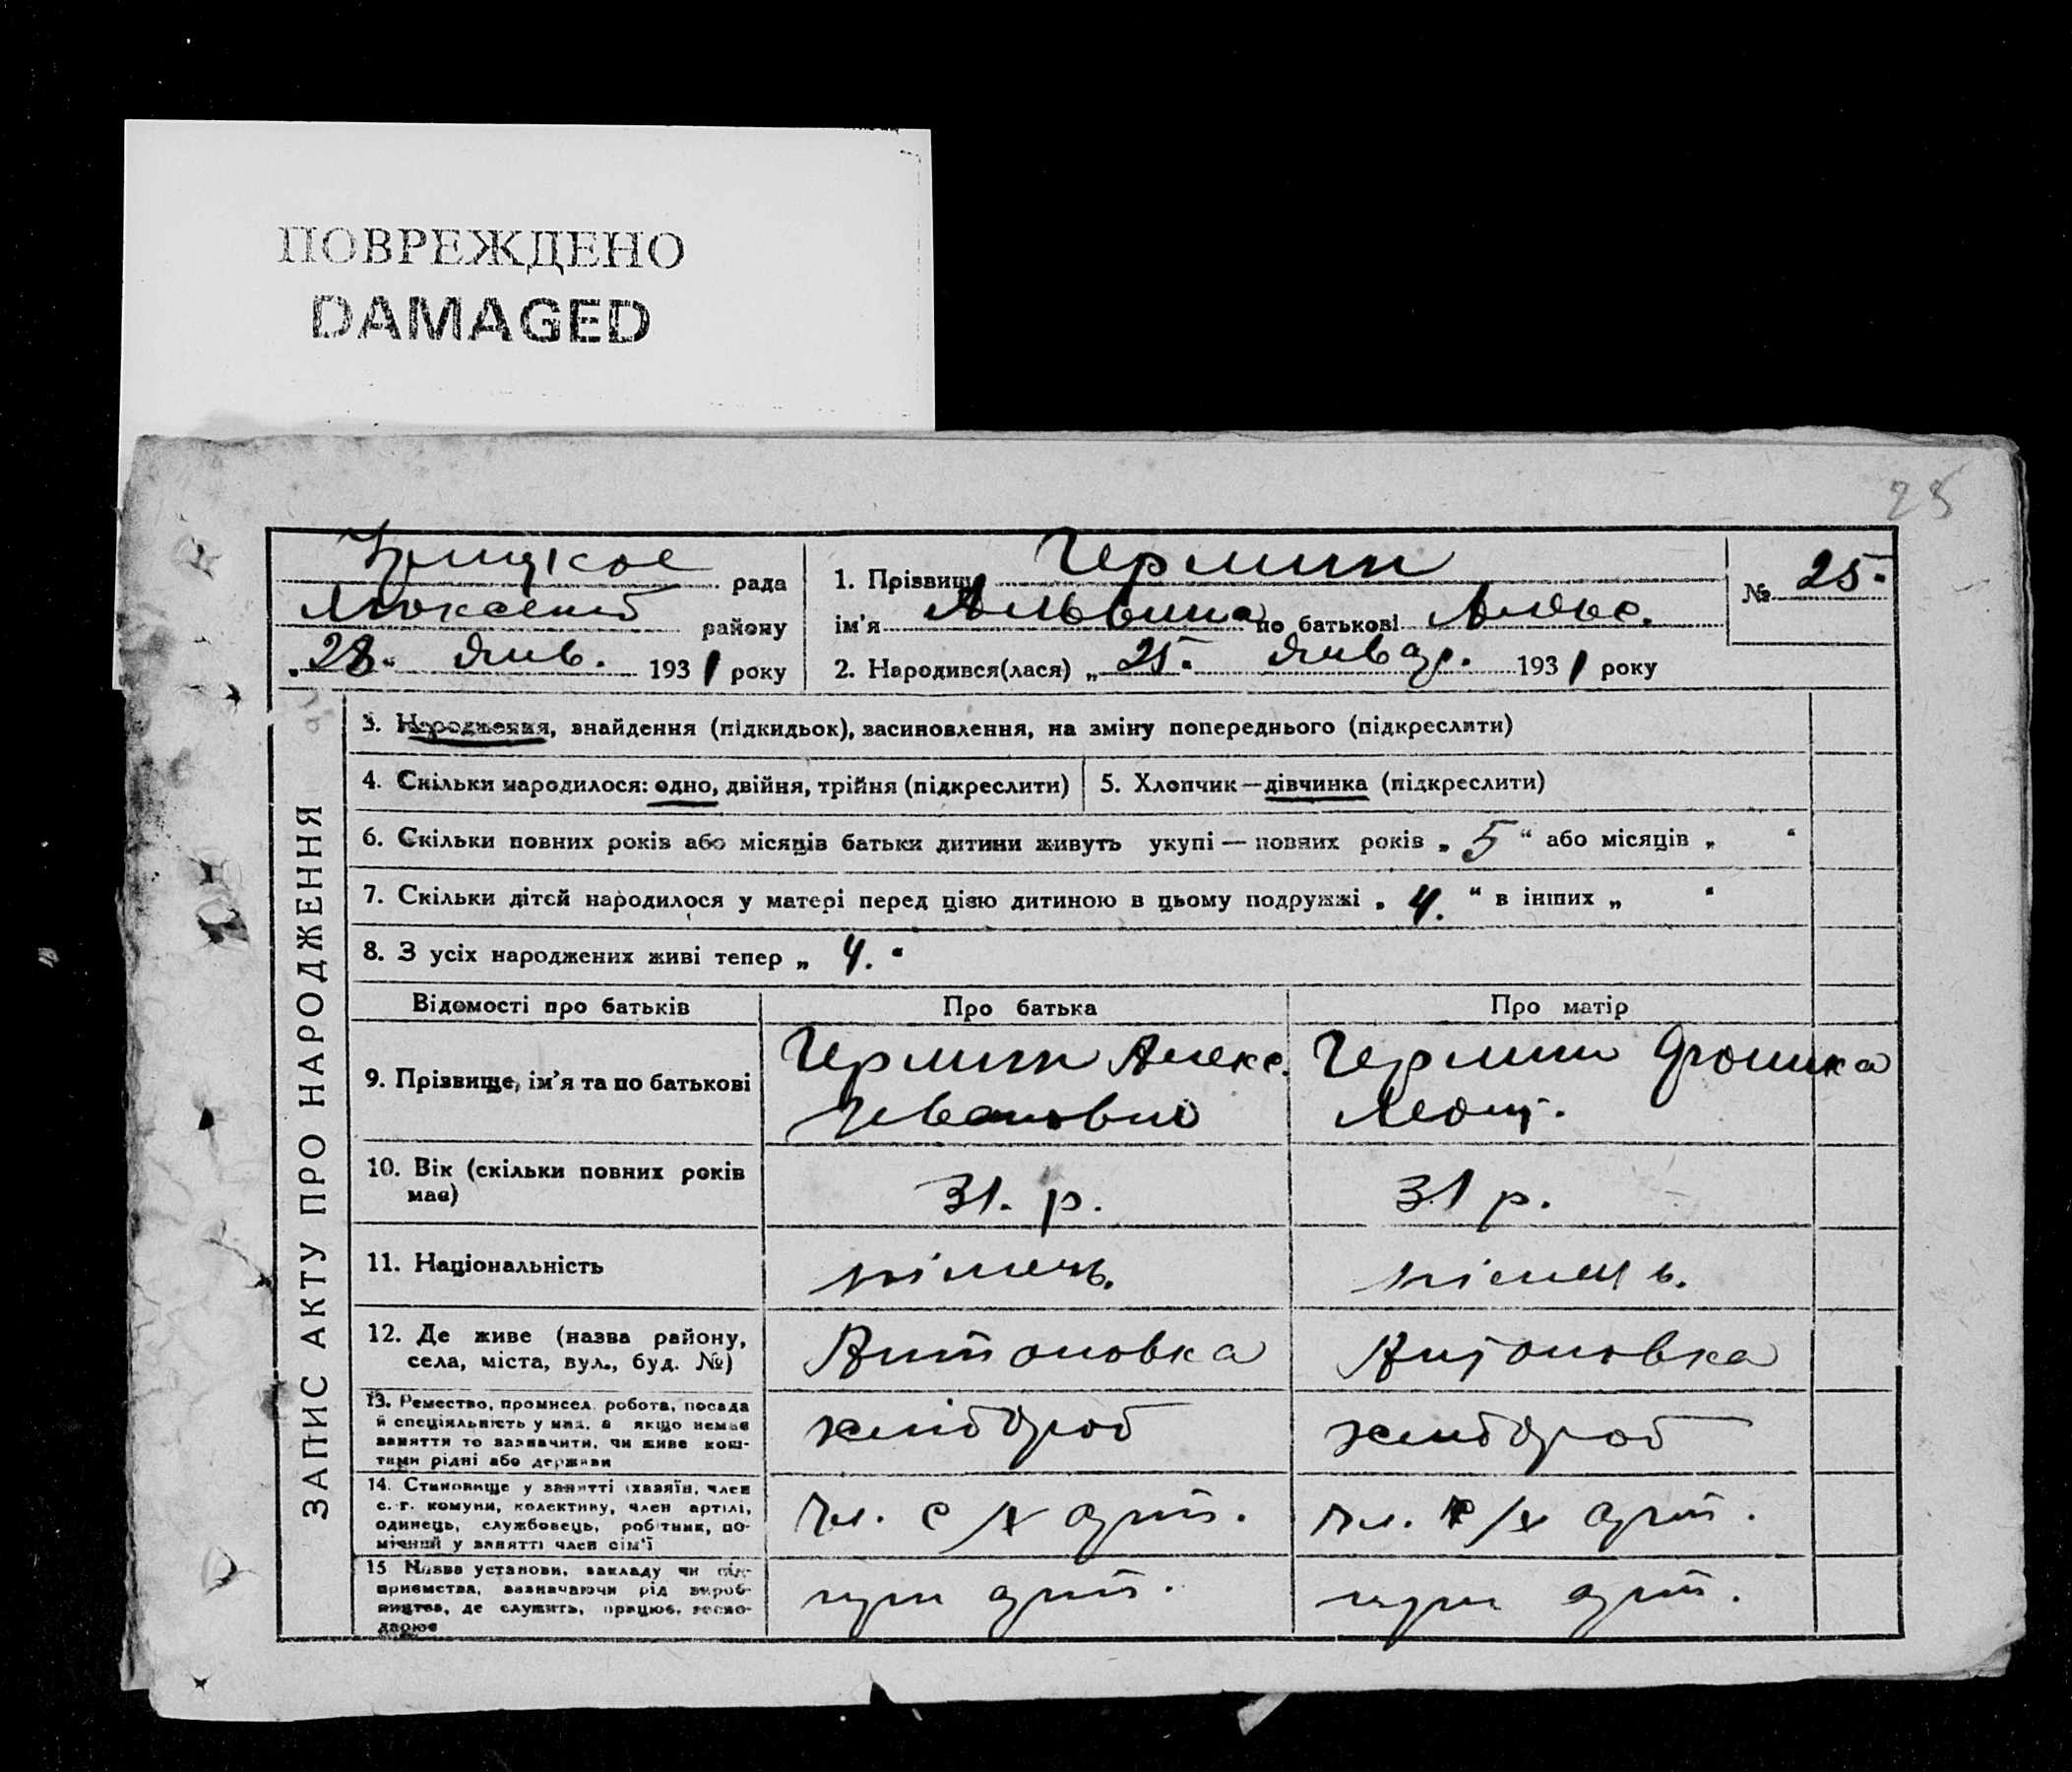 ПОВРЕЖДЕНО
DAMAGED
25
рада
району
„28“ Янв. 1931 року
1. Прізвище Гермип
ім'я Альвина по батькові Алекс.
№ 25.
2. Народився(лася) „25“ Январ. 1931 року
ЗАПИС АКТУ ПРО НАРОДЖЕННЯ
3. Народження, знайдення (підкидьок), засиновлення, на зміну попереднього (підкреслити)
4. Скільки народилося: одно, двійня, трійня (підкреслити)
5. Хлопчик—дівчинка (підкреслити)
6. Скільки повних років або місяців батьки дитини живуть укупі — повних років „5“ або місяців „ “
7. Скільки дітей народилося у матері перед цією дитиною в цьому подружжі „4.“ в інших „ “
8. З усіх народжених живі тепер „4.“
Відомості про батьків
Про батька
Про матір
9. Прізвище, ім'я та по батькові
Алекс.
Иванович
10. Вік (скільки повних років має)
31. р.
31 р.
11. Національність
німець.
німець.
12. Де живе (назва району,
села, міста, вул., буд. №)
Антоновка
Антоновка
13. Ремество, промисел, робота, посада
й спеціяльність у них, а якщо немає
заняття то зазначити, чи живе кош-
тами рідні або держави
хлібороб
хлібороб
14. Становище у занятті (хазяїн, член
с.-г. комуни, колективу, член артілі,
одинець, службовець, робітник, по-
мічний у занятті член сім'ї
чл. с/х арт.
чл. с/х арт.
15. Назва установи, закладу чи під-
приємства, зазначаючи рід вироб-
ництва, де служить, працює, госпо-
дарює
при арт.
при арт.